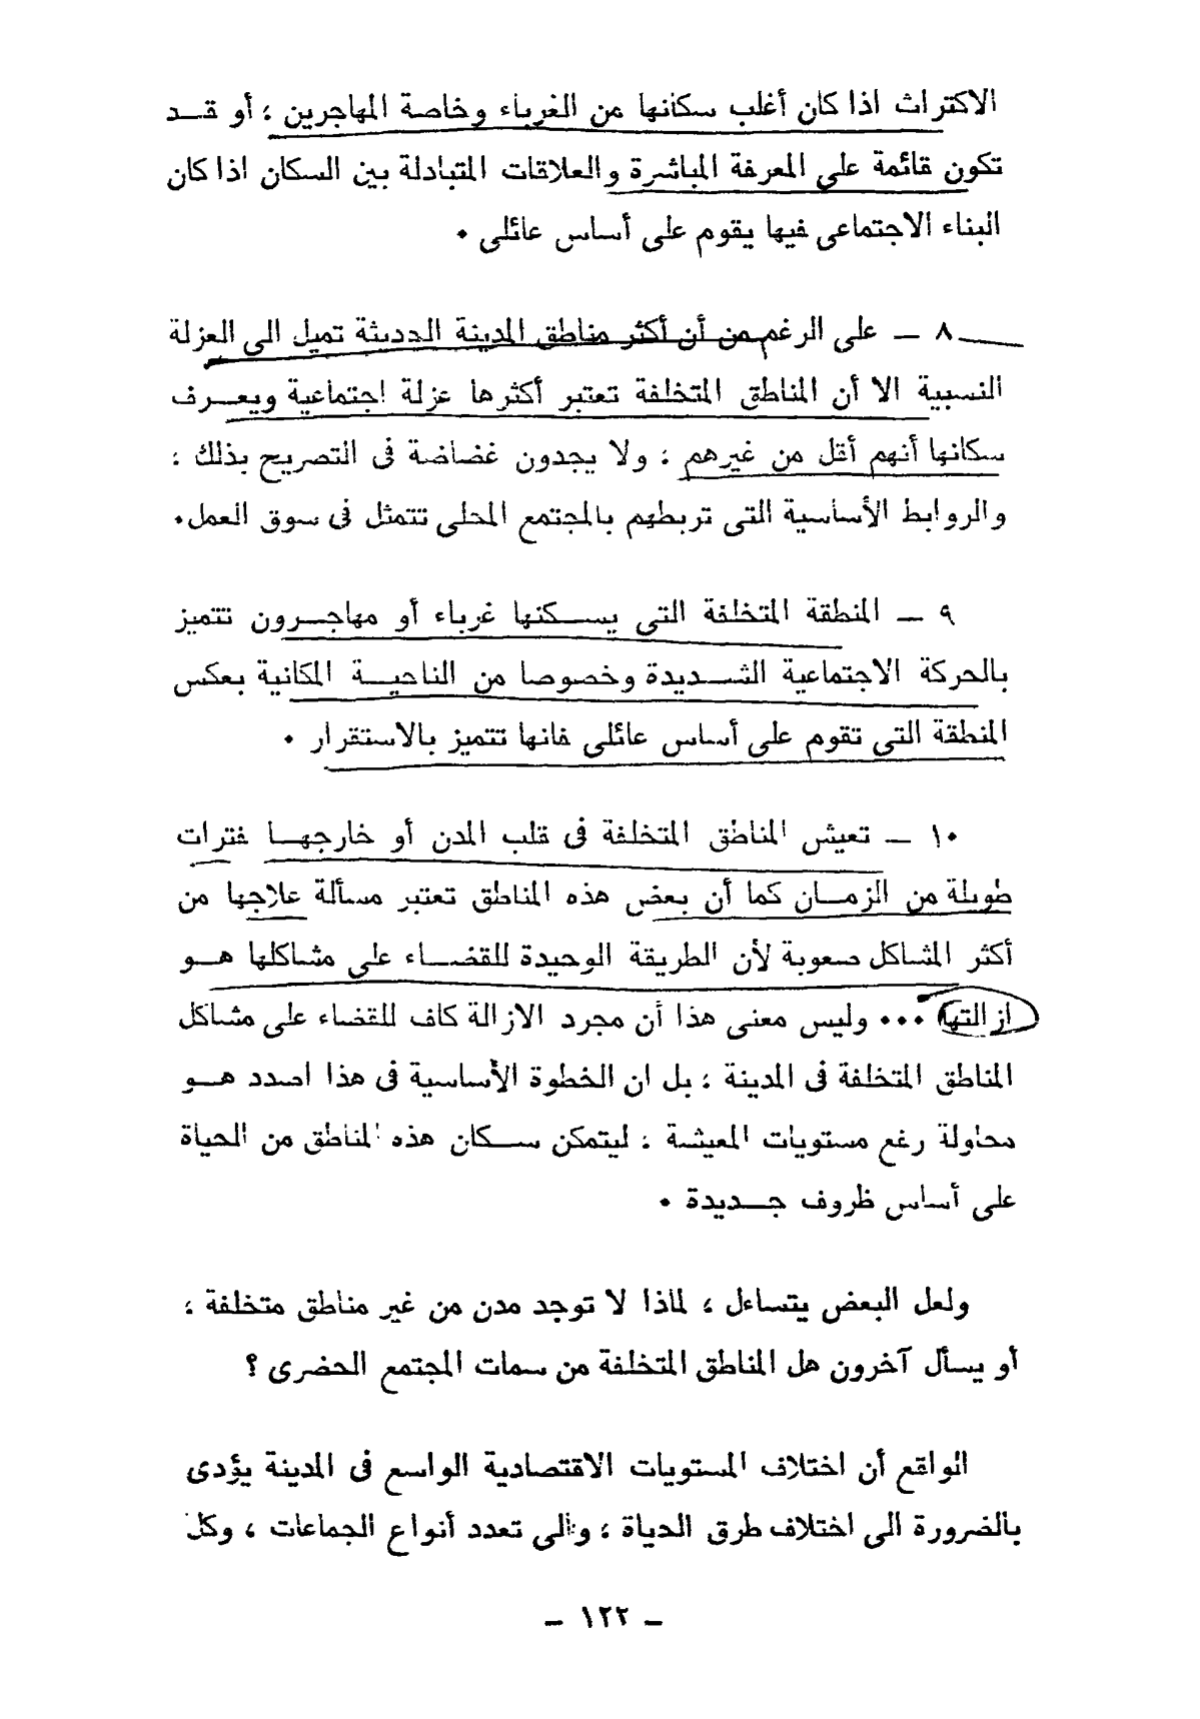 الاكتراث اذا كان أغلب سكانها من الغرباء وخاصة المهاجرين ؛ أو قـــد
تكون قائمة على المعرفة المباشرة والعلاقات المتبادلة بين السكان اذا كان
البناء الاجتماعى فيها يقوم على أساس عائلى ٠
٨ ـ على الرغم من أن أكثر مناطق المدينة الحديثة تميل الى العزلة
النسبية الا أن المناطق المتخلفة تعتبر أكثرها عزلة اجتماعية ويعـــرف
سكانها أنهم أقل من غيرهم ؛ ولا يجدون غضاضة فى التصريح بذلك ؛
والروابط الأساسية التى تربطهم بالمجتمع المحلى تتمثل فى سوق العمل٠
٩ ـ المنطقة المتخلفة التى يســـكنها غرباء أو مهاجـــرون تتميز
بالحركة الاجتماعية الشـــديدة وخصوصا من الناحيـــة المكانية بعكس
المنطقة التى تقوم على أساس عائلى فانها تتميز بالاستقرار ٠
١٠ ـ تعيش المناطق المتخلفة فى قلب المدن أو خارجهـــا فترات
طويلة من الزمـــان كما أن بعض هذه المناطق تعتبر مسألة علاجها من
أكثر المشاكل صعوبة لأن الطريقة الوحيدة للقضـــاء على مشاكلها هـــو
ازالتها ٠٠٠ وليس معنى هذا أن مجرد الازالة كاف للقضاء على مشاكل
المناطق المتخلفة فى المدينة ؛ بل ان الخطوة الأساسية فى هذا اصدد هـــو
محاولة رغع مستويات المعيشة ؛ ليتمكن ســـكان هذه المناطق من الحياة
على أساس ظروف جـــديدة ٠
ولعل البعض يتساءل ؛ لماذا لا توجد مدن من غير مناطق متخلفة ؛
أو يسأل آخرون هل المناطق المتخلفة من سمات المجتمع الحضرى ؟
الواقع أن اختلاف المستويات الاقتصادية الواسع فى المدينة يؤدى
بالضرورة الى اختلاف طرق الحياة ؛ والى تعدد أنواع الجماعات ، وكل
ـ ١٢٢ ـ